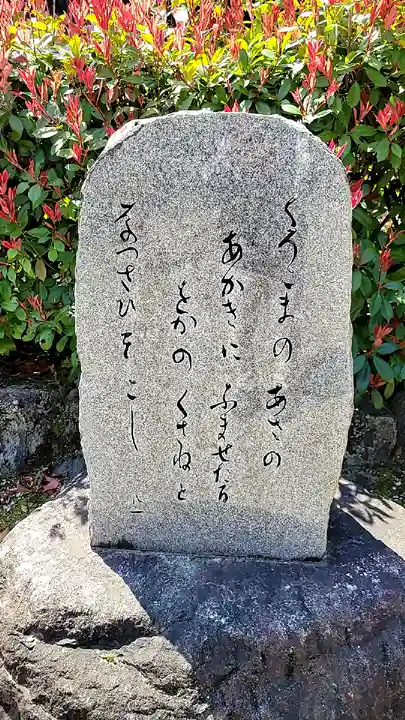 くろこまの あさの
あかきに ふませたる
をかの くさねと
なつさひそこし 八一